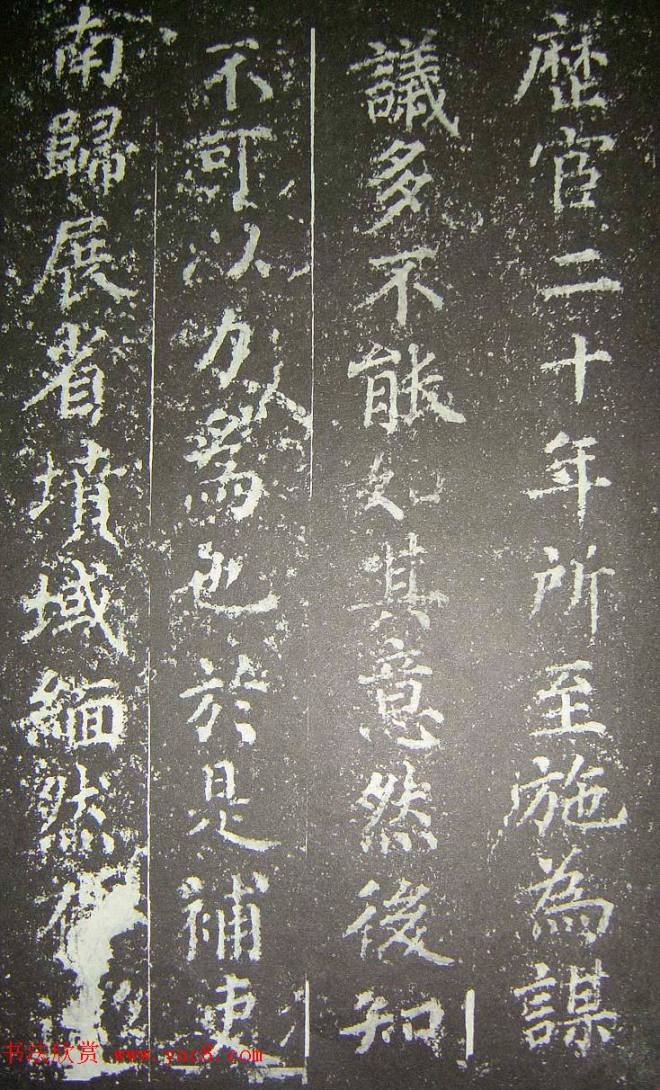 歷官二十年所至施為謀
議多不能如其意然後知
不可以力為也於是補吏
南歸展省墳域緬然
书法欣赏 www.yac8.com